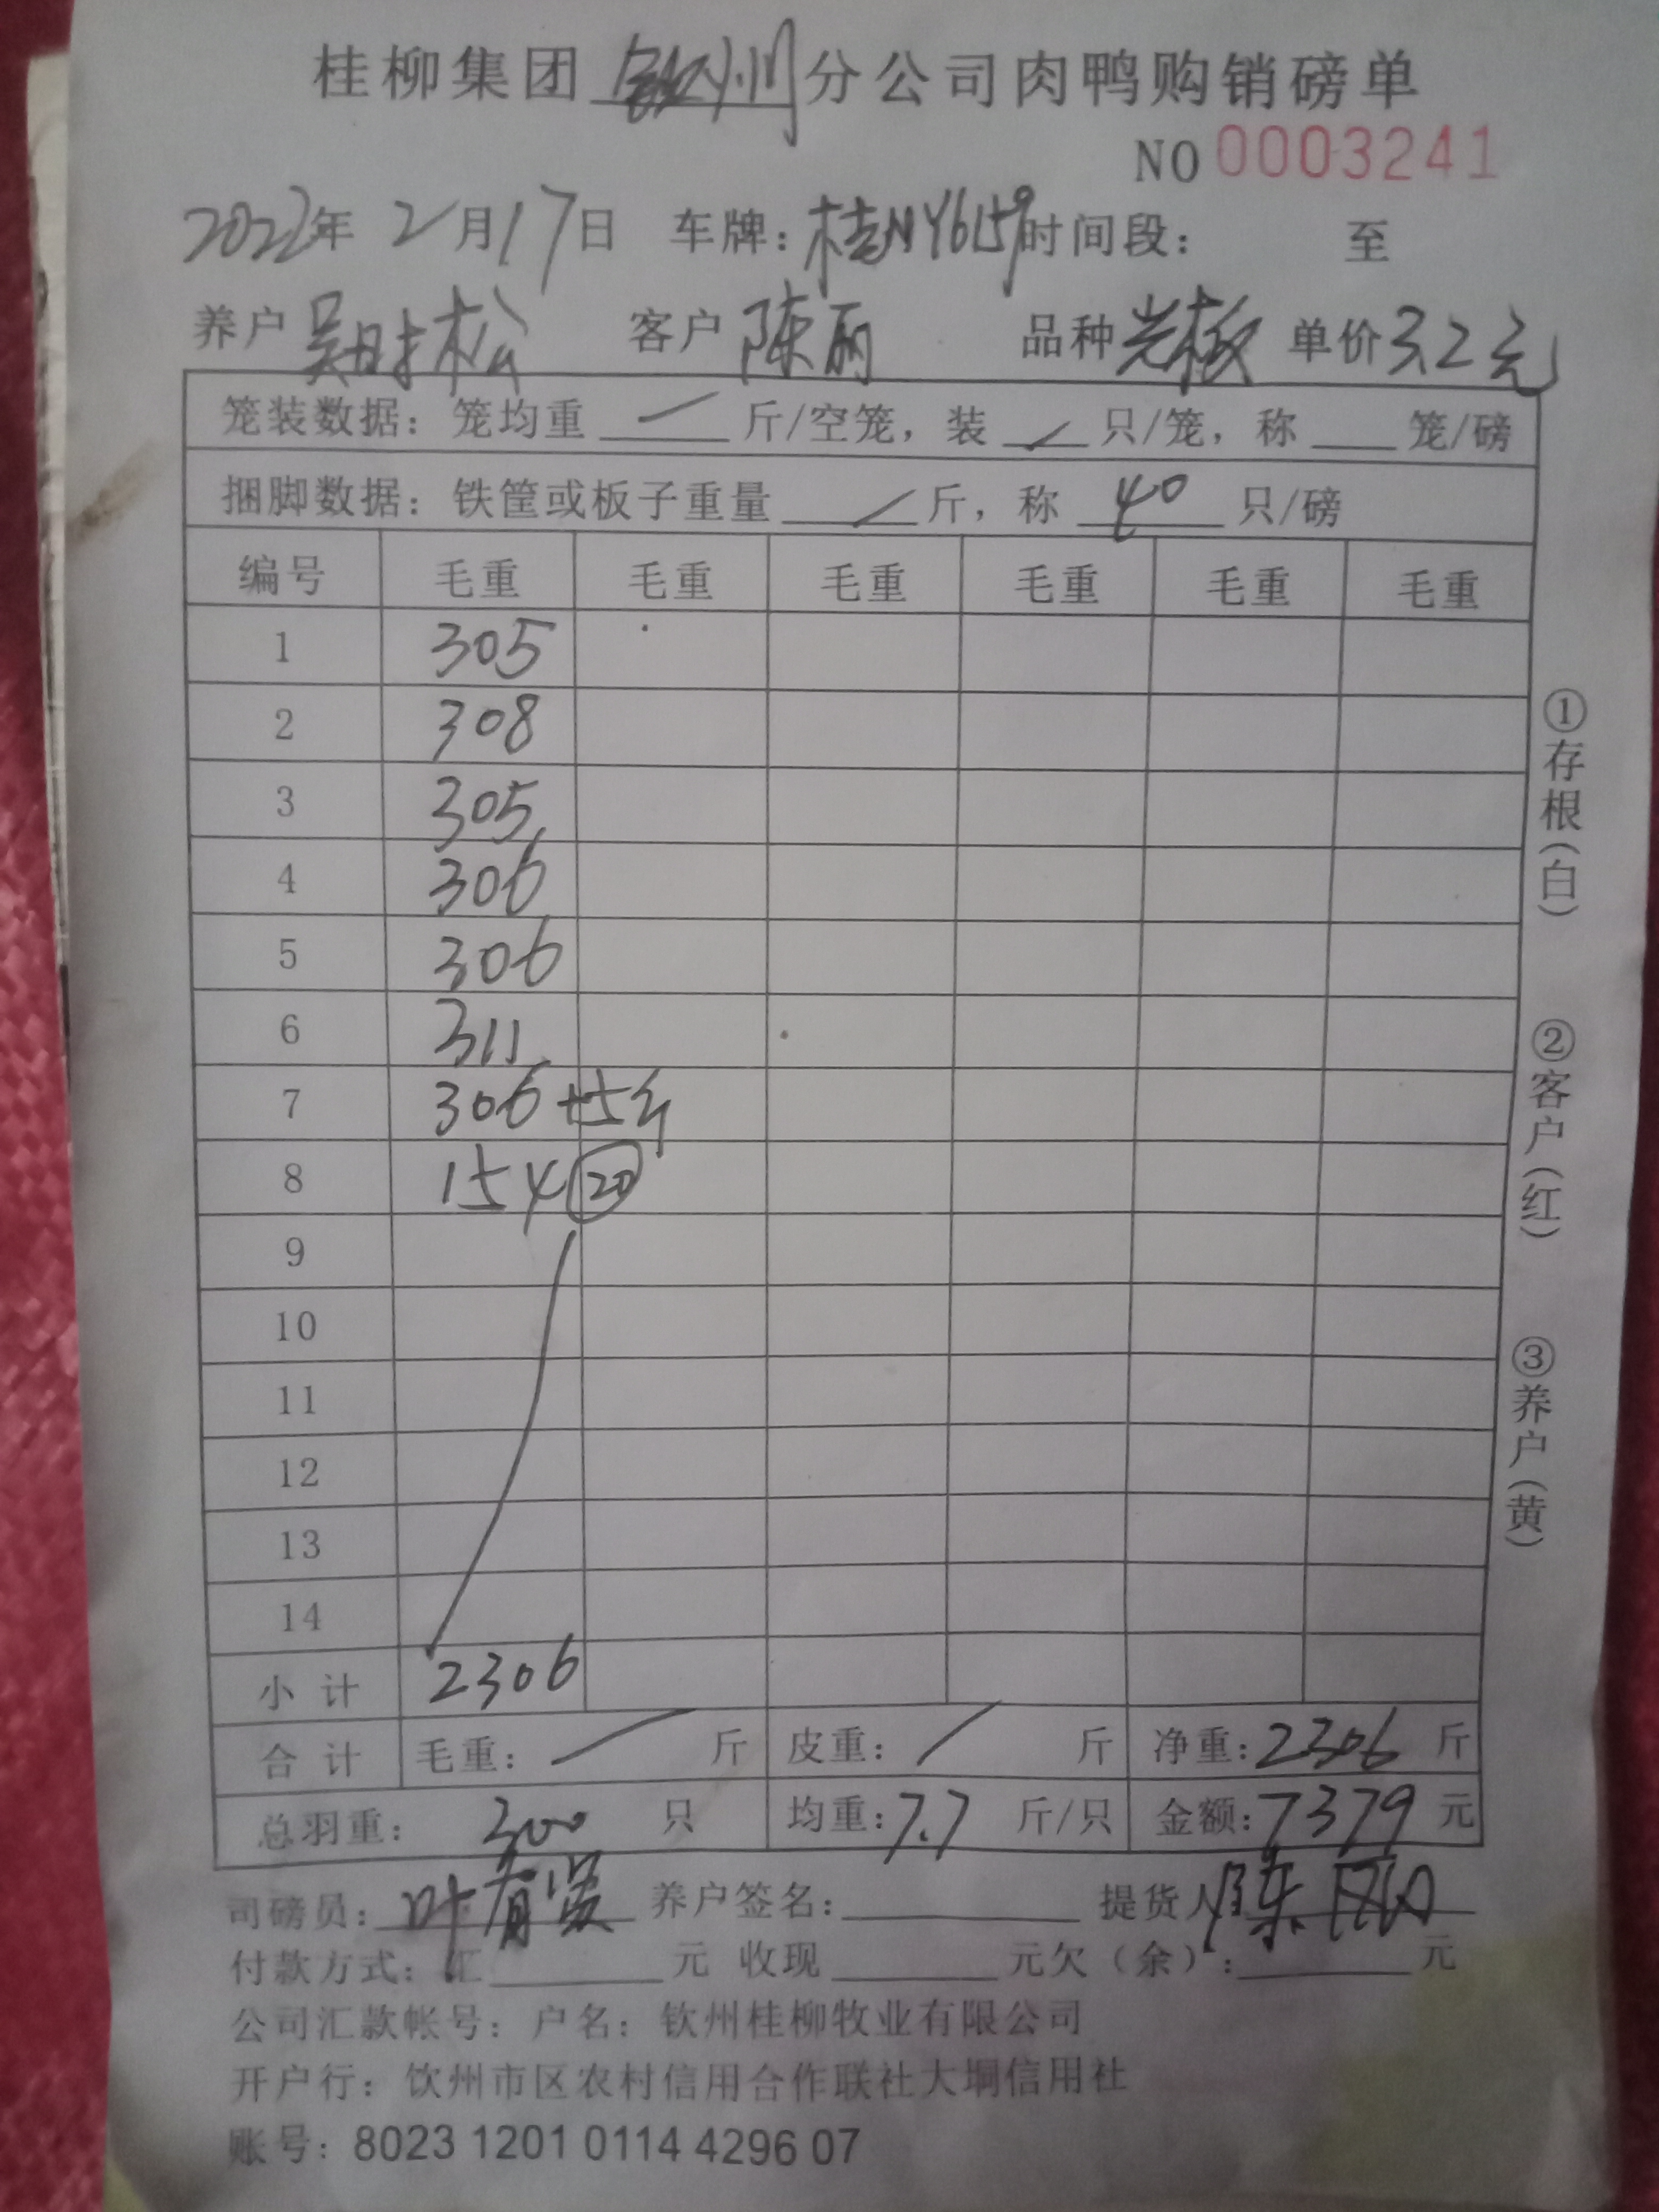 桂柳集团 钦州 分公司肉鸭购销磅单
NO 0003241
2022年 2月17日 车牌：桂NY6159 时间段： 至
养户 吴时松 客户 陈丽 品种 光板 单价 3.2元
笼装数据：笼均重 / 斤/空笼，装 / 只/笼，称 笼/磅
捆脚数据：铁筐或板子重量 / 斤，称 40 只/磅
编号 毛重 毛重 毛重 毛重 毛重 毛重
1 305
2 308
3 305
4 306
5 306
6 311
7 306 +5斤
8 154 ⑳
9
10
11
12
13
14
小计 2306
合计 毛重： / 斤 皮重： / 斤 净重：2306 斤
总羽重： 300 只 均重：7.7 斤/只 金额：7379 元
司磅员：叶有贤 养户签名： 提货人 陈丽
付款方式：汇 元 收现 元欠（余）： 元
公司汇款帐号：户名：钦州桂柳牧业有限公司
开户行：钦州市区农村信用合作联社大垌信用社
账号：8023 1201 0114 4296 07
①存根（白）
②客户（红）
③养户（黄）